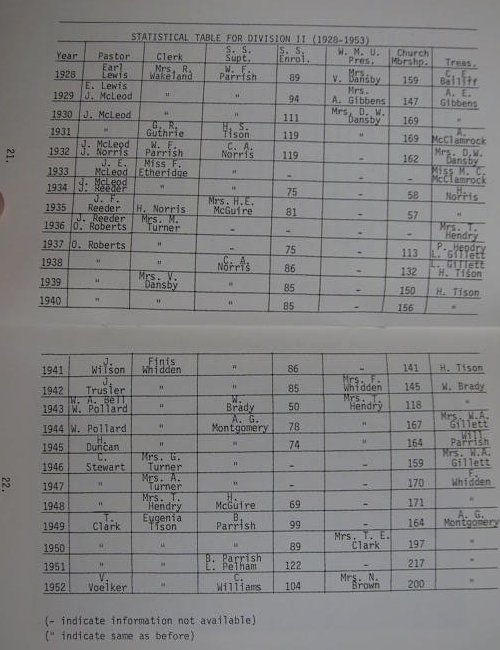 STATISTICAL TABLE FOR DIVISION II (1928-1953)
Year Pastor Clerk S. S. Supt. S. S. Enrol. W. M. U. Pres. Church Mbrshp. Treas.
1928 Earl Lewis Mrs. R. Wakeland W. F. Parrish 89 Mrs. V. Dansby 159 C. E. Bailiff
1929 E. Lewis J. McLeod " " 94 Mrs. A. Gibbens 147 A. E. Gibbens
1930 J. McLeod " " 111 Mrs. D. W. Dansby 169 "
1931 " G. R. Guthrie H. S. Tison 119 " 169 A. McClamrock
1932 J. McLeod J. Norris W. F. Parrish C. A. Norris 119 " 162 Mrs. D.W. Dansby
1933 J. E. McLeod Miss F. Etheridge " - - - Miss M. C. McClamrock
1934 J. McLeod J. Reeder " " 75 - 58 H. Norris
1935 J. F. Reeder H. Norris Mrs. H.E. McGuire 81 - 57 "
1936 J. Reeder O. Roberts Mrs. M. Turner - - - - Mrs. T. Hendry
1937 O. Roberts " - 75 - 113 P. Hendry L. Gillett
1938 " " C. A. Norris 86 - 132 L. Gillett H. Tison
1939 " Mrs. V. Dansby " 85 - 150 H. Tison
1940 " " " 85 - 156 "
21.
1941 J. Wilson Finis Whidden " 86 - 141 H. Tison
1942 J. Trusler " " 85 Mrs. F. Whidden 145 W. Brady
1943 W. A. Bell W. Pollard " W. Brady 50 Mrs. T. Hendry 118 "
1944 W. Pollard " A. G. Montgomery 78 " 167 Mrs. W.A. Gillett
1945 H. Duncan " " 74 " 164 Will Parrish
1946 C. Stewart Mrs. G. Turner " - - 159 Mrs. W.A. Gillett
1947 " Mrs. A. Turner " - - 170 F. Whidden
1948 " Mrs. T. Hendry H. McGuire 69 - 171 "
1949 T. Clark Eugenia Tison B. Parrish 99 - 164 A. G. Montgomery
1950 " " " 89 Mrs. T. E. Clark 197 "
1951 " " B. Parrish L. Pelham 122 - 217 "
1952 V. Voelker " C. Williams 104 Mrs. N. Brown 200 "
22.
(- indicate information not available)
(" indicate same as before)